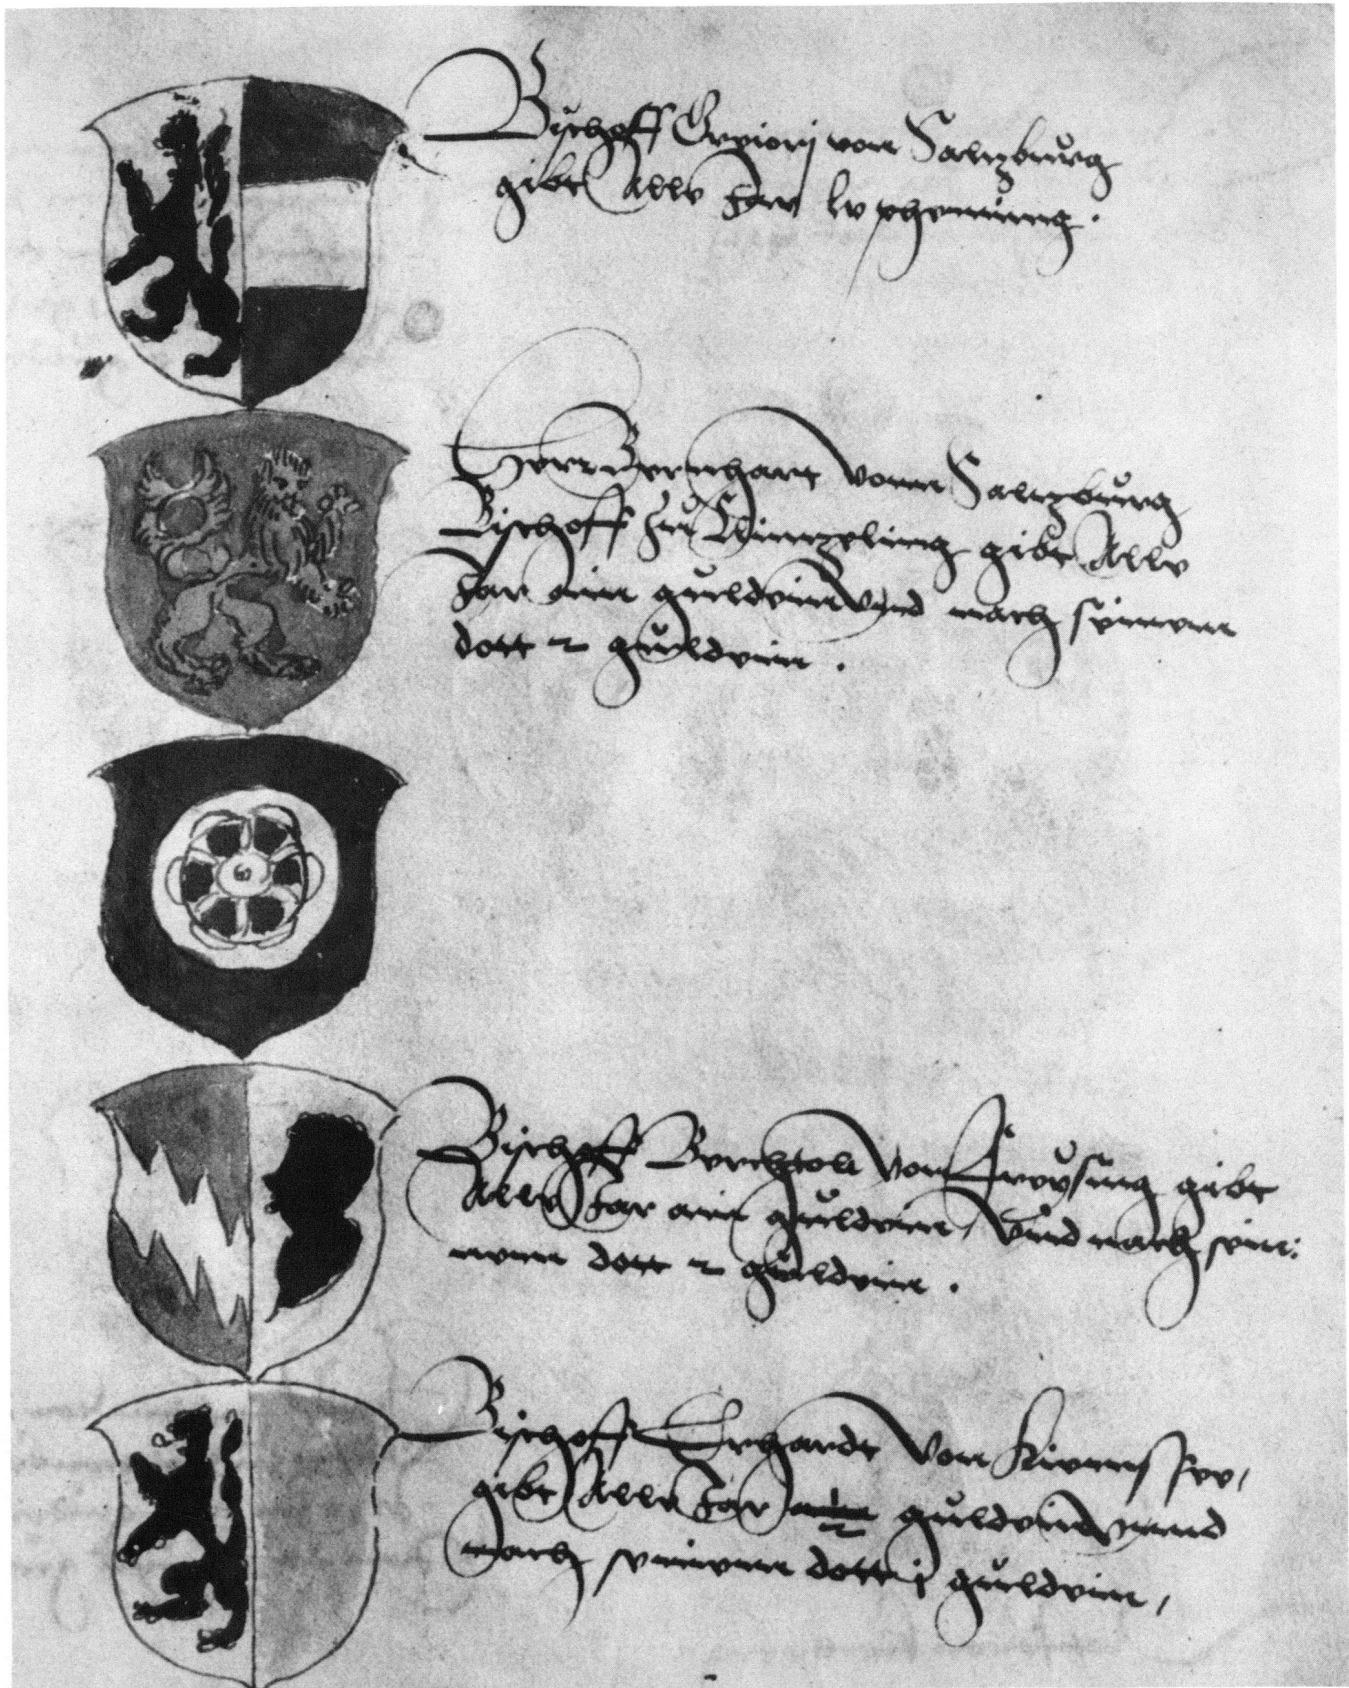 Bischoff von Saltzburg
gibt Alle Jar lx phenning.
Herr Bernhart vonn Saltzburg
Bischoff zu gibt Alle
Jar ain guldeinn Vnd nach seinem
dott 2 guldeinn.
Bischoff Berchtolt von Freysing gibt
Alle Jar ain guldeinn, Vnd nach sein:
nenn dott 2 guldeinn.
Bischoff Erhardt von Kiemssee,
gibt Alle Jar 2 guldeinn Vnnd
nach seinenn dott j guldeinn,